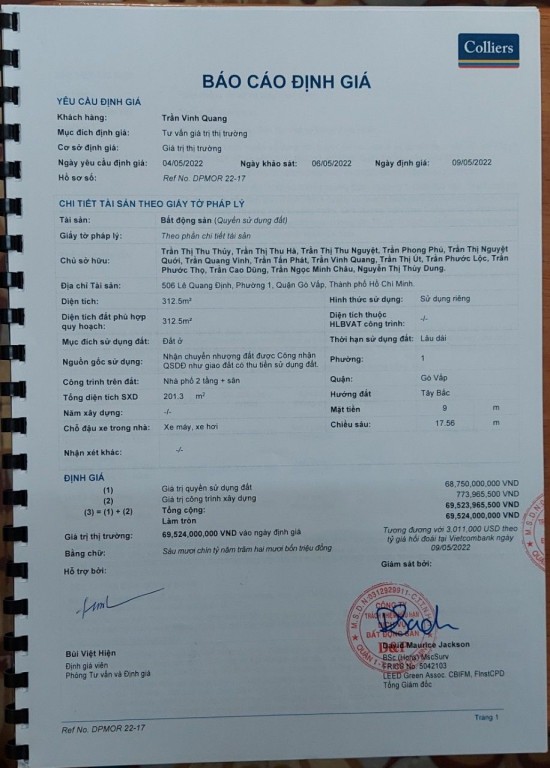 Colliers
BÁO CÁO ĐỊNH GIÁ
YÊU CẦU ĐỊNH GIÁ
Khách hàng: Trần Vinh Quang
Mục đích định giá: Tư vấn giá trị thị trường
Cơ sở định giá: Giá trị thị trường
Ngày yêu cầu định giá: 04/05/2022 Ngày khảo sát: 06/05/2022 Ngày định giá: 09/05/2022
Hồ sơ số: Ref No. DPMOR 22-17
CHI TIẾT TÀI SẢN THEO GIẤY TỜ PHÁP LÝ
Tài sản: Bất động sản (Quyền sử dụng đất)
Giấy tờ pháp lý: Theo phần chi tiết tài sản
Chủ sở hữu: Trần Thị Thu Thủy, Trần Thị Thu Hà, Trần Thị Thu Nguyệt, Trần Phong Phú, Trần Thị Nguyệt
Quới, Trần Quang Vinh, Trần Tấn Phát, Trần Vinh Quang, Trần Thị Út, Trần Phước Lộc, Trần
Phước Thọ, Trần Cao Dũng, Trần Ngọc Minh Châu, Nguyễn Thị Thùy Dung.
Địa chỉ Tài sản: 506 Lê Quang Định, Phường 1, Quận Gò Vấp, Thành phố Hồ Chí Minh.
Diện tích: 312.5m² Hình thức sử dụng: Sử dụng riêng
Diện tích đất phù hợp quy hoạch: 312.5m² Diện tích thuộc HLBVAT công trình: -/-
Mục đích sử dụng đất: Đất ở Thời hạn sử dụng đất: Lâu dài
Nguồn gốc sử dụng: Nhận chuyển nhượng đất được Công nhận QSDĐ như giao đất có thu tiền sử dụng đất. Phường: 1
Công trình trên đất: Nhà phố 2 tầng + sân Quận: Gò Vấp
Tổng diện tích SXD 201.3 m² Hướng đất Tây Bắc
Năm xây dựng: -/- Mặt tiền 9 m
Chỗ đậu xe trong nhà: Xe máy, xe hơi Chiều sâu: 17.56 m
Nhận xét khác: -/-
ĐỊNH GIÁ
(1) Giá trị quyền sử dụng đất 68,750,000,000 VND
(2) Giá trị công trình xây dựng 773,965,500 VND
(3) = (1) + (2) Tổng cộng: 69,523,965,500 VND
Làm tròn 69,524,000,000 VND
Giá trị thị trường: 69,524,000,000 VND vào ngày định giá Tương đương với 3.011,000 USD theo tỷ giá hối đoái tại Vietcombank ngày 09/05/2022
Bằng chữ: Sáu mươi chín tỷ năm trăm hai mươi bốn triệu đồng
Hỗ trợ bởi: Giám sát bởi:
CÔNG TY
BẤT ĐỘNG SẢN
D&P
Bùi Việt Hiện David Maurice Jackson
Định giá viên BSc (Hons) MscSurv
Phòng Tư vấn và Định giá FRICS No. 5042103
LEED Green Assoc. CBIFM, FInstCPD
Tổng Giám đốc
Trang 1
Ref No. DPMOR 22-17